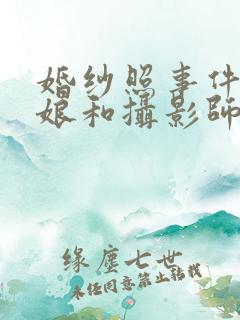 婚纱照事件
娘和攝影師
缘塵七世
未任同意禁止转载